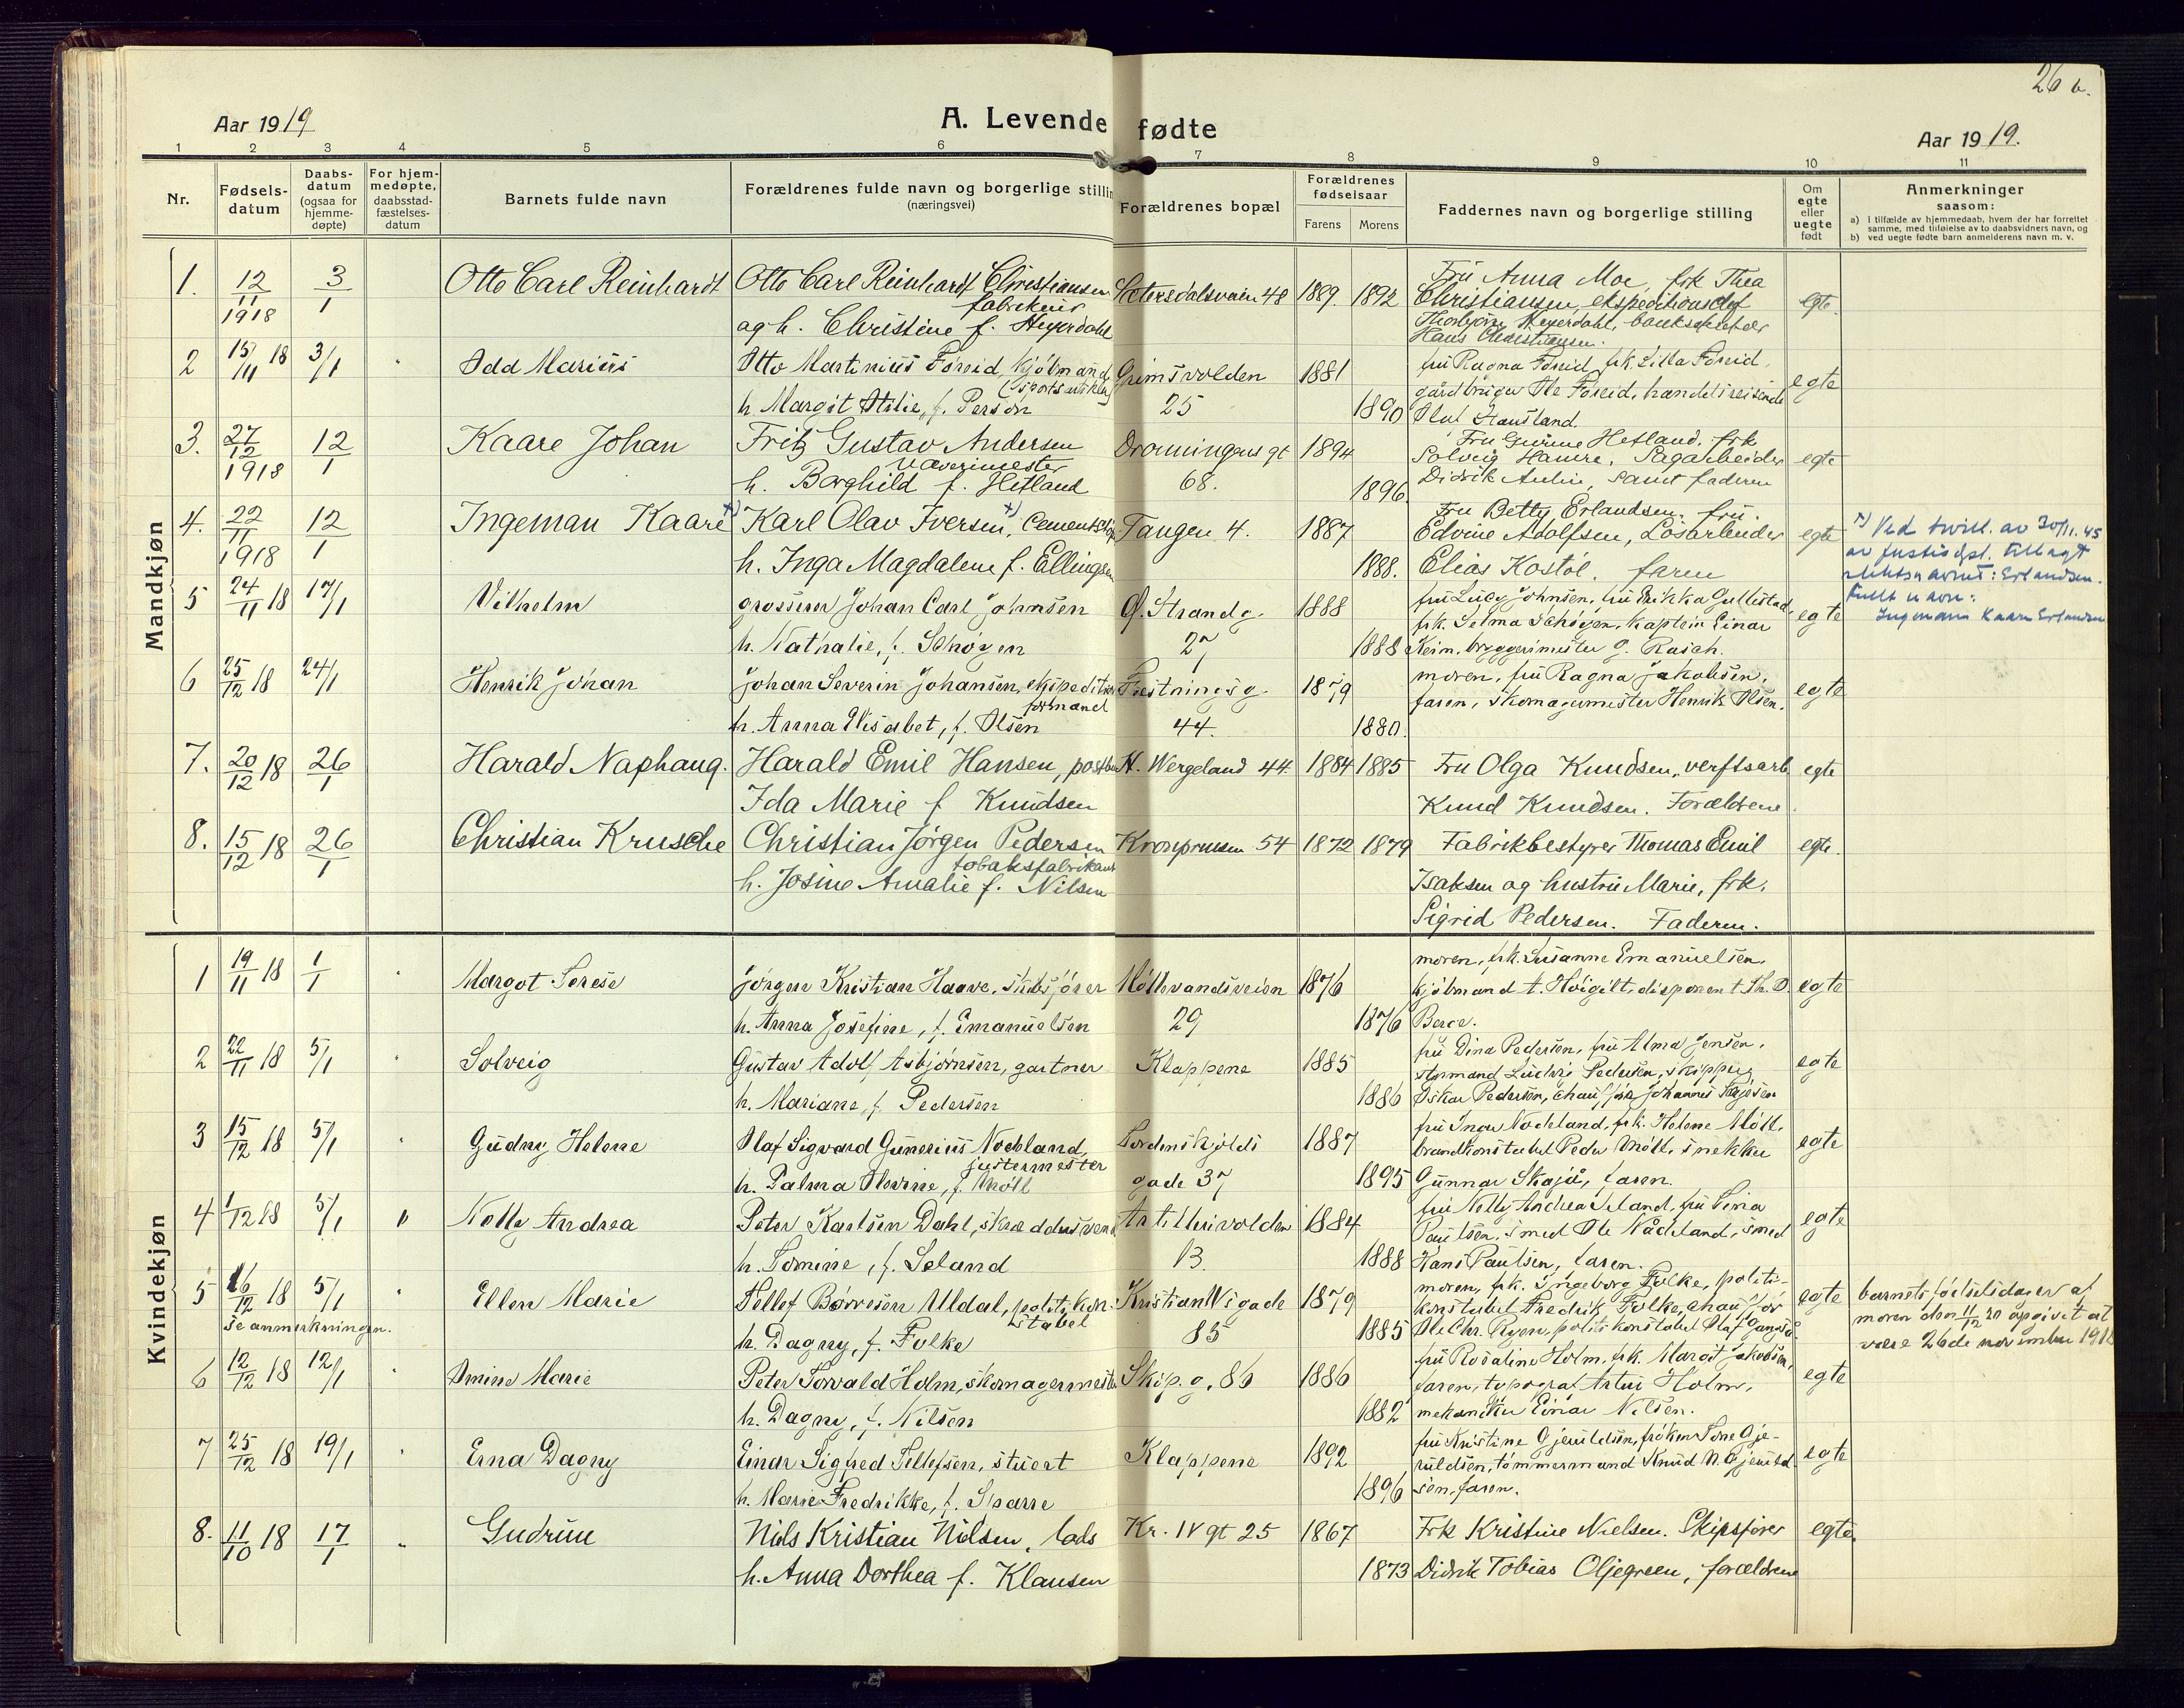 26 b.
Aar 1919
A. Levende fødte
Aar 1919.
1 2 3 4 5 6 7 8 9 10 11
Nr.
Fødsels-
datum
Daabs-
datum
(ogsaa for
hjemme-
døpte)
For hjem-
medøpte,
daabsstad-
fæstelses-
datum
Barnets fulde navn
Forældrenes fulde navn og borgerlige stillin
(næringsvei)
Forældrenes bopæl
Forældrenes
fødselsaar
Farens Morens
Faddernes navn og borgerlige stilling
Om
egte
eller
uegte
født
Anmerkninger
saasom:
a) I tilfælde av hjemmedaab, hvem der har forrettet
samme, med tilføielse av to daabsvidners navn, og
b) ved uegte fødte barn anmelderens navn m. v.
Mandkjøn
1. 12/11 1918 3/1 Otto Carl Reinhardt Otto Carl Reinhardt Christiansen Sætersdalsveien 48 1889. 1892 Fru Anna Moe, frk Thea egte.
fabrikeier Christiansen, ekspeditionschef
og h. Christine f. Heyerdahl Thorbjørn Heyerdahl, banksekretær
Hans Christiansen.
2 15/11 18 3/1 " Odd Marius Otto Martinius Foreid, kjøbmand Grimsvolden 1881 fru Ragna Foreid, frk. Lilla Foreid, egte
(sportsartikler) gårdbruger Ole Foreid, handelsreisende
h. Margit Otilie, f. Person 25 1890 Olaf Haustand.
3. 27/12 1918 12/1 Kaare Johan Fritz Gustav Andersen Dronningens gt 1894 Fru Gurine Hefland. frk egte
Væverimester Solveig Hamre, Sagarbeider
h. Borghild f. Hefland 68. 1896 Didrik Aulin, samt faderen
4. 22/11 1918 12/1 Ingeman Kaare x) Karl Olav Iversen, x) Cementstøp Tangen 4. 1887 Fru Betty Erlandsen. fru. egte
Edvine Adolfsen, Løsarbeider
h. Inga Magdalene f. Ellingsen 1888. Elias Kostøl. faren
x) Ved bevill. av 30/11. 45
av Justisdpt. tillagt
slektsnavnet: Erlandsen.
Fullt navn:
Ingemann Kaare Erlandsen
5 24/11 18 17/1 Vilhelm grosserer Johan Carl Johnsen Ø. Strandg. 1888 fru Lucy Johnsen, fru Erikka Gullestad, egte
frk. Selma Schøyen, kaptein Einar
h. Nathalie, f. Schøyen 27 1888 Keim, bryggerimester G. Rasch.
6 25/12 18 24/1 Henrik Johan Johan Severin Johansen, ekspeditions Festningsg. 1879 moren, fru Ragna Jakobsen, egte
formand faren, skomagermester Henrik Olsen.
h. Anna Elisabet, f. Olsen 44. 1880.
7. 20/12 18 26/1 Harald Naphaug. Harald Emil Hansen, postbu H. Wergeland 44. 1884 1885 Fru Olga Knudsen, verftsarb egte
Ida Marie f Knudsen Knud Knudsen. Forældrene.
8. 15/12 18 26/1 Christian Krusche Christian Jørgen Pedersen Kronprinsen 54 1872 1879 Fabrikbestyrer Thomas Emil egte.
tobaksfabrikant
h. Josine Amalie f. Nilsen Isaksen og hustru Marie, frk.
Sigrid Pedersen. Faderen.
Kvindekjøn
1 19/11 18 1/1 " Margot Terese Jørgen Kristian Haave, skibsfører Møllevandsveien 1876 moren, frk. Susanne Emanuelsen, egte
kjøbmand t. Høigilt, disponent Th. O.
h. Anna Josefine, f. Emanuelsen 29 1876 Berge.
2 22/11 18 5/1 " Solveig Gustav Adolf Asbjørnsen, gartner Klappene 1885 fru Dina Pedersen, fru Alma Jensen, egte
styrmand Ludvig Pedersen, skipper
h. Mariane, f. Pedersen 1886 Oskar Pedersen, chauffør Johannes
3 15/12 18 5/1 " Gudny Helene Olaf Sigvard Gunerius Nodeland, Tordenskjolds 1887 fru Inga Nodeland, frk. Helene Møll, egte
justermester brandkonstabel Peder Møll, snekker
h. Palma Olevine, f. Møll gade 37 1895 Gunnar Skajå, faren.
4 1/12 18 5/1 " Nelly Andrea Peter Karlsen Dahl, skræddersvend Artillerivolden 1884 fru Nelly Andrea Seland, fru Sina egte
Paulsen, smed Ole Nådeland, smed
h. Tomine, f. Seland 13. 1888 Hans Paulsen, faren.
5 16/12 18 5/1 " Ellen Marie Tellef Børresen Uldal, politikon- Kristian IVs gade 1879 moren, frk. Ingeborg Folke, politi- egte
se anmerkningen. stabel konstabel Fredrik Folke, chauffør
h. Dagny, f. Folke 85 1885 Ole Chr. Ryen, politikonstabel Olaf
barnets fødselsdag er af
moren den 11/12 20 opgivet at
være 26de november 1918
6 12/12 18 12/1 " Omine Marie Peter Torvald Holm, skomagermester Skip.g. 86 1886 fru Rosaline Holm, frk. Margit Jakobsen, egte
faren, typograf Artur Holm,
h. Dagny, f. Nilsen 1882 mekaniker Einar Nilsen.
7 25/12 18 19/1 " Erna Dagny Einar Sigfred Tellefsen, stuert Klappene 1892 fru Kristine Gjeruldsen, frøken Tone Gje- egte
ruldsen, tømmermand Knud N. Gjeruld
h. Marie Fredrikke, f. Sparre 1896 sen, faren.
8. 11/10 18 17/1 " Gudrun Nils Kristian Nilsen, lods Kr. IV gt 25 1867 Frk Kristine Nielsen. Skipsfører egte.
h. Anna Dorthea f. Klausen 1873 Didrik Tobias Oljegreen, forældrene